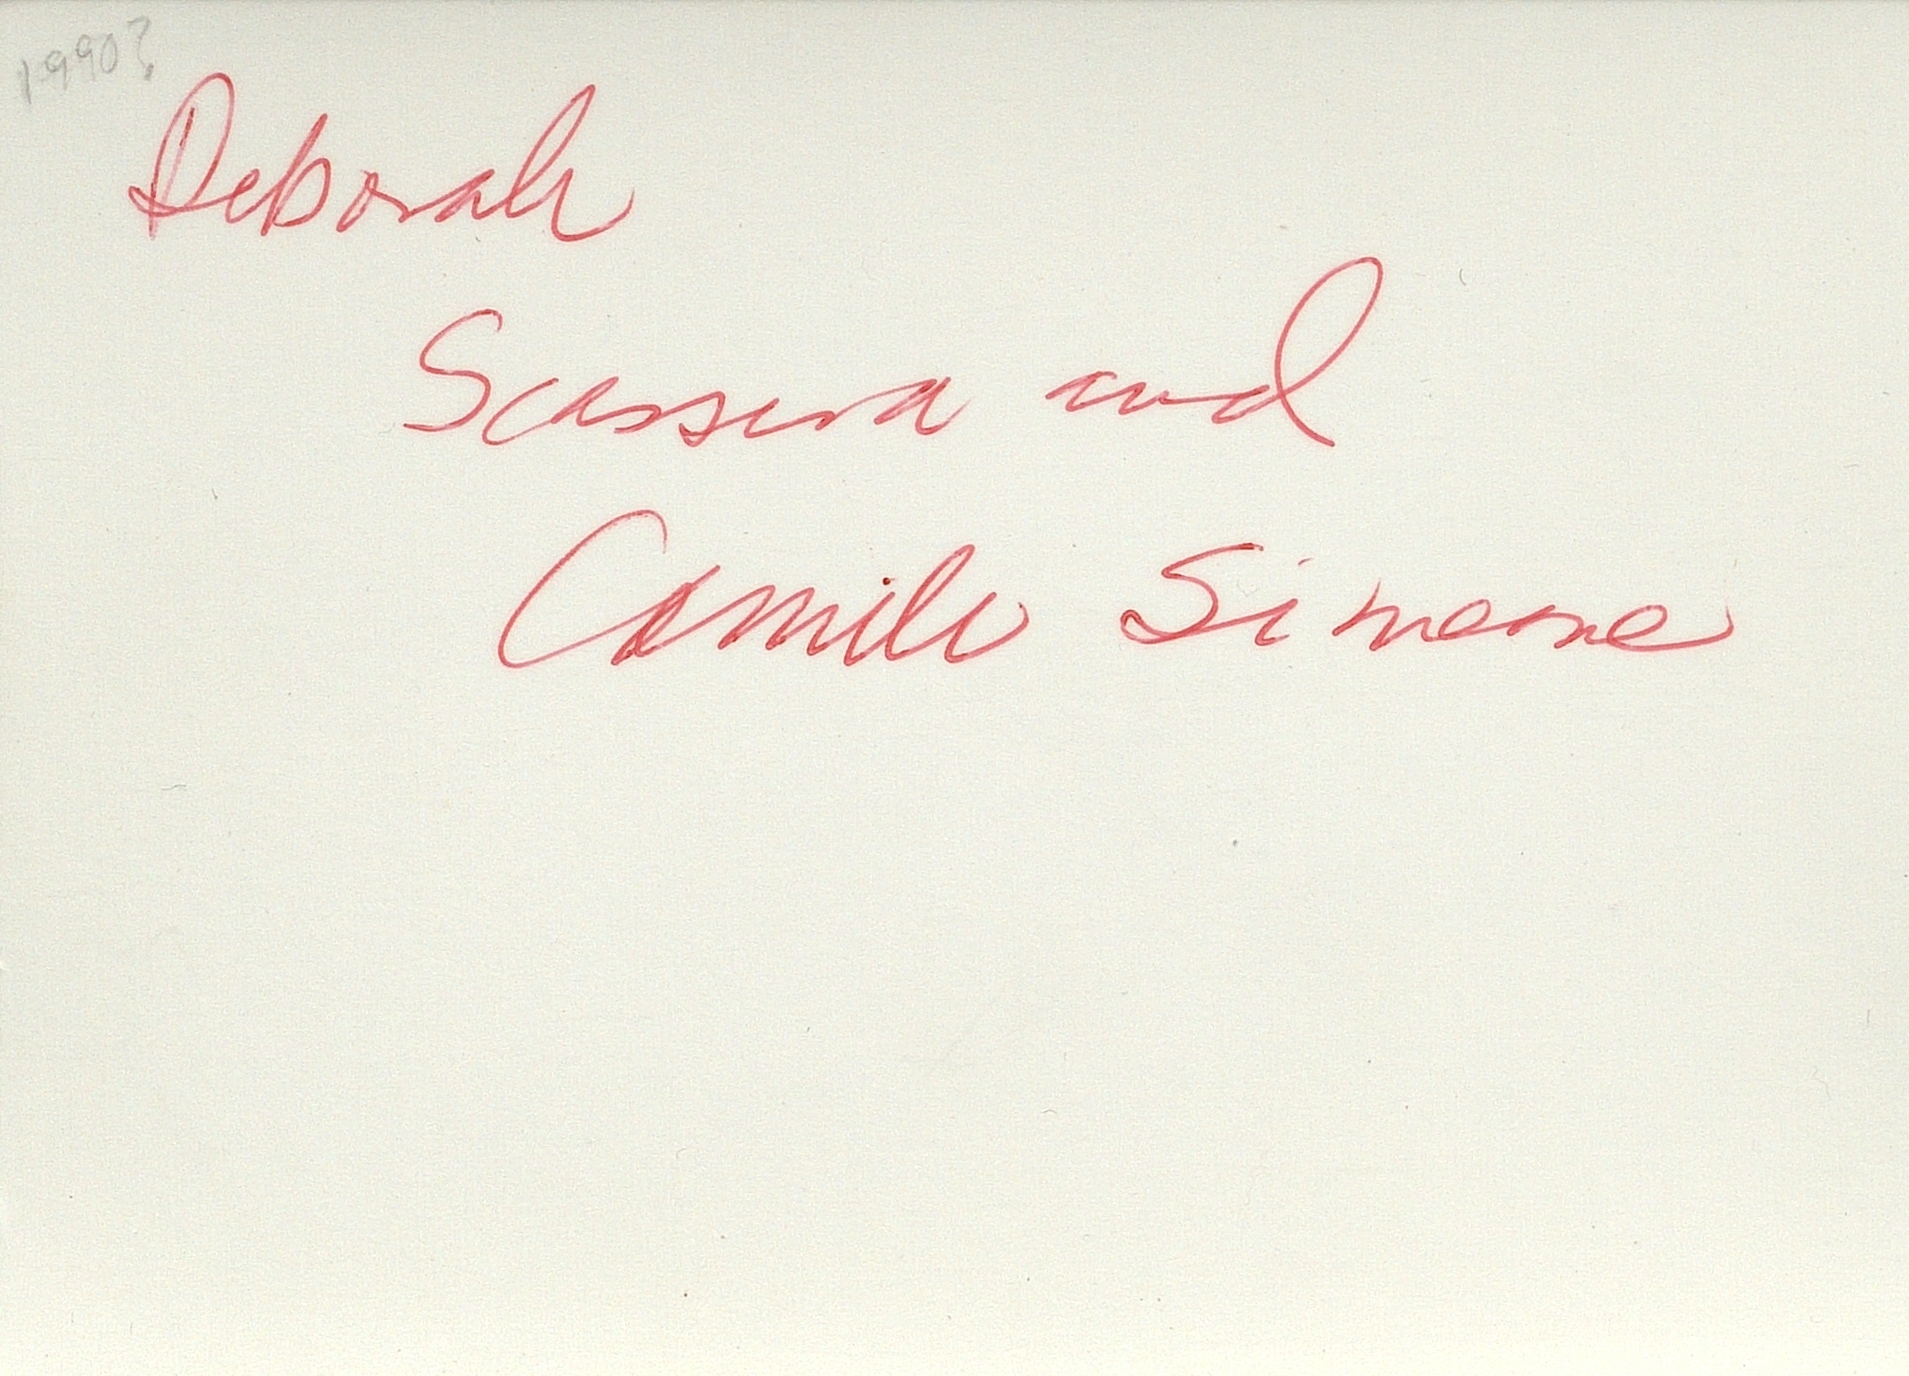 1990?
Deborah
Scassera and
Camile Simeone